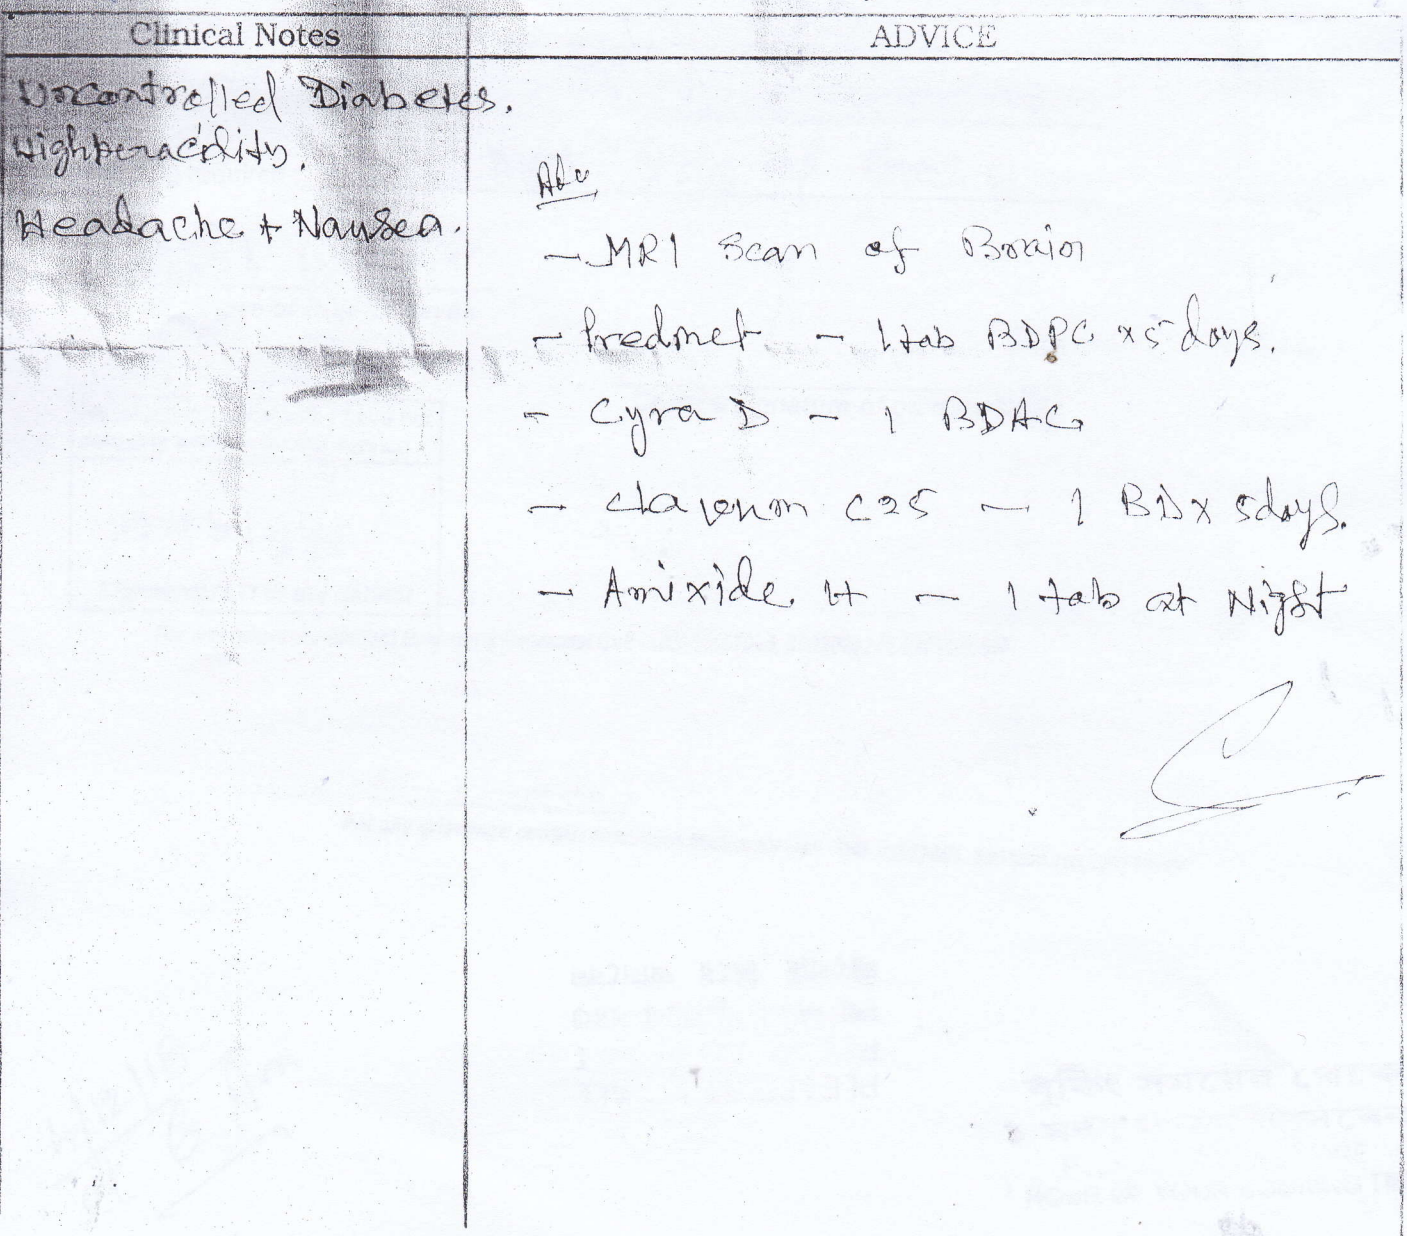 Clinical Notes
ADVICE
Uncontrolled Diabetes.
Highperacidity.
Headache + Nausea.
Adv
- MRI Scan of Brain
- Predmet - 1 tab BDPC x 5 days.
- Cyra D - 1 BDAC
- 625 - 1 BD x 5days.
- Amixide H - 1 tab at Night